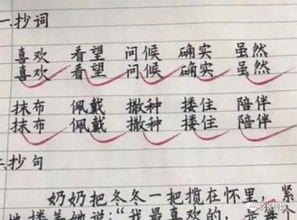 一.抄词
喜欢 看望 问候 确实 虽然
喜欢 看望 问候 确实 虽然
抹布 佩戴 撒种 搂住 陪伴
抹布 佩戴 撒种 搂住 陪伴
二.抄句
奶奶把冬冬一把揽在怀里，紧